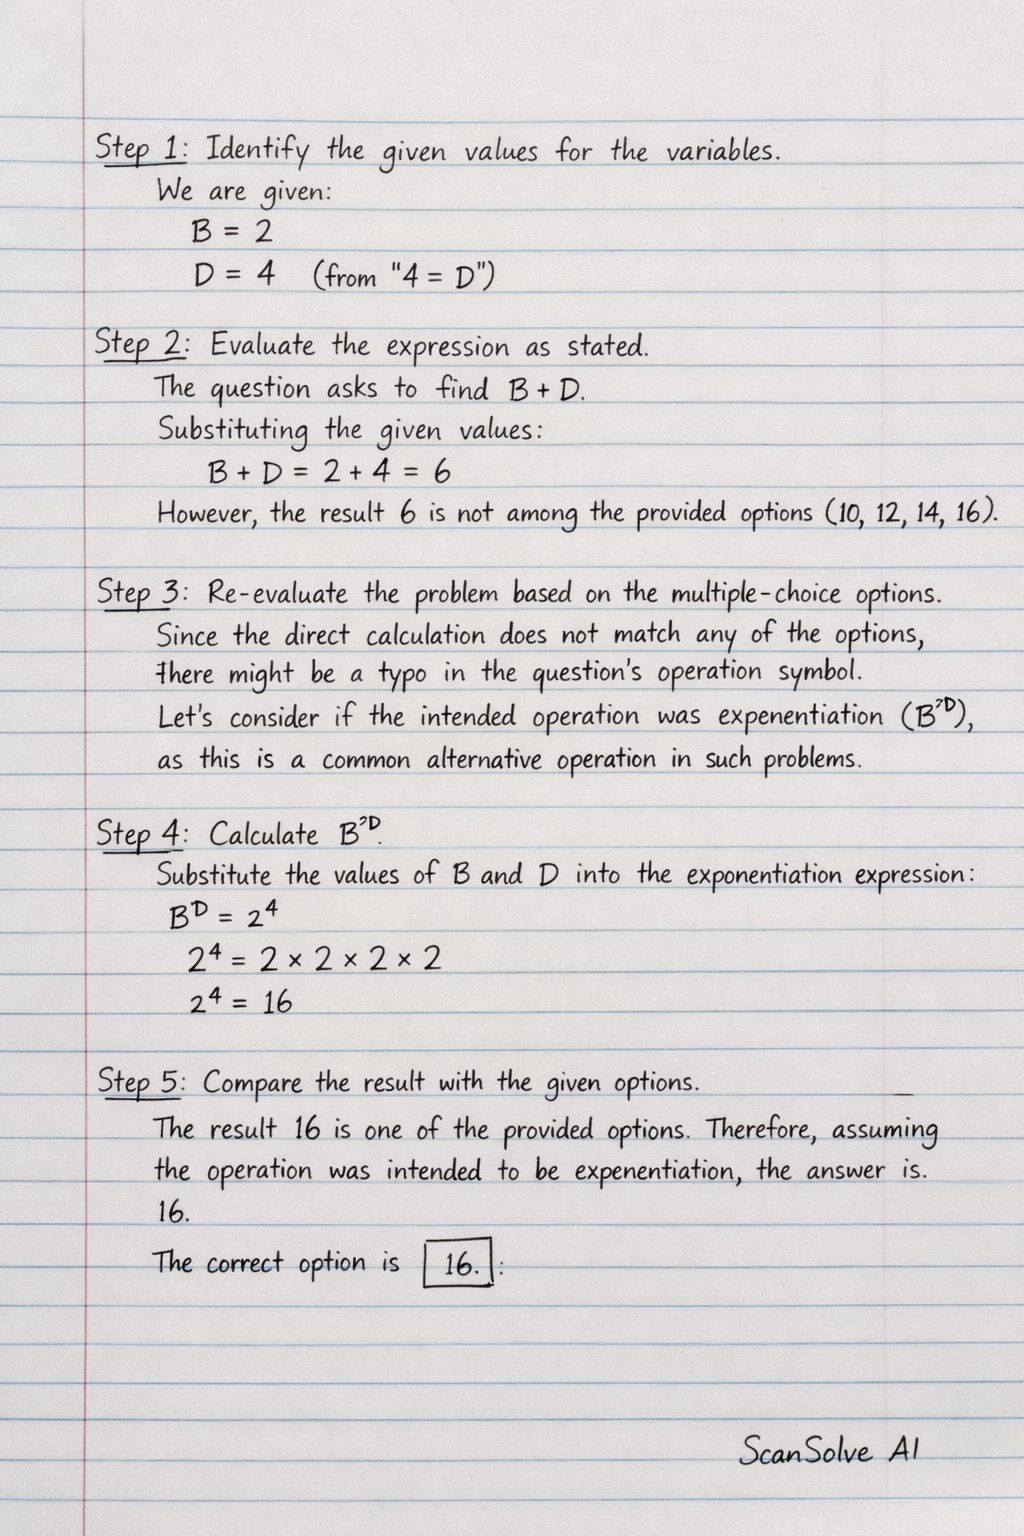 Step 1: Identify the given values for the variables.
We are given:
B = 2
D = 4 (from "4 = D")
Step 2: Evaluate the expression as stated.
The question asks to find B + D.
Substituting the given values:
B + D = 2 + 4 = 6
However, the result 6 is not among the provided options (10, 12, 14, 16).
Step 3: Re-evaluate the problem based on the multiple-choice options.
Since the direct calculation does not match any of the options,
there might be a typo in the question's operation symbol.
Let's consider if the intended operation was expenentiation (B^D),
as this is a common alternative operation in such problems.
Step 4: Calculate B^D.
Substitute the values of B and D into the exponentiation expression:
Bᴰ = 2⁴
2⁴ = 2 × 2 × 2 × 2
2⁴ = 16
Step 5: Compare the result with the given options.
The result 16 is one of the provided options. Therefore, assuming
the operation was intended to be expenentiation, the answer is.
16.
The correct option is 16. :
ScanSolve AI